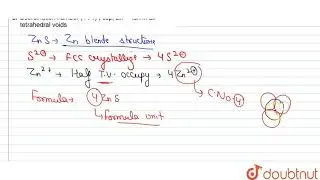 tetrahedral voids
ZnS → Zn blende structure
S²⊖ → FCC crystallize → 4S²⊖
Zn²⁺ → Half T.V. occupy → 4Zn²⊕
→ C.No. 4
Formula → 4 ZnS
↳ Formula unit
doubtnut